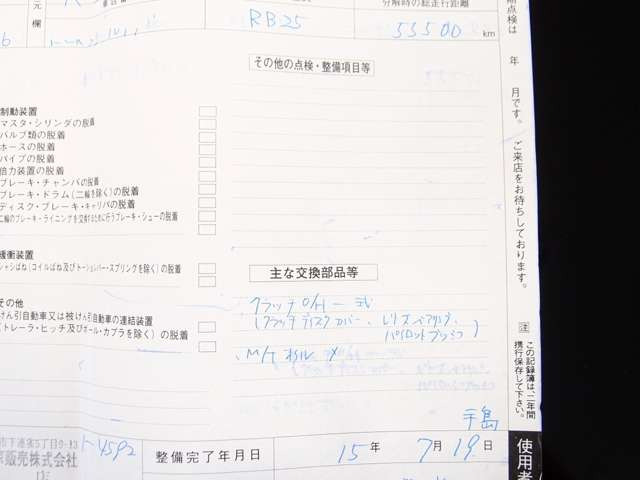 元
欄
RB25
分解時の総走行距離
55500 km
その他の点検・整備項目等
制動装置
マスタ・シリンダの脱着
バルブ類の脱着
ホースの脱着
パイプの脱着
倍力装置の脱着
ブレーキ・チャンバの脱着
ブレーキ・ドラム(二輪を除く)の脱着
ディスク・ブレーキ・キャリパの脱着
二輪のブレーキ・ライニングを交換するために行うブレーキ・シューの脱着
緩衝装置
シャシばね(コイルばね及びトーションバー・スプリングを除く)の脱着
その他
けん引自動車又は被けん引自動車の連結装置
(トレーラ・ヒッチ及びボール・カプラを除く)の脱着
主な交換部品等
クラッチO/H一式
(クラッチディスクカバー、レリーズベアリング、
パイロットブッシュ)
M/Tオイル
手島
市下連雀5丁目9-13
販売株式会社
4592
整備完了年月日
15年 7月 19日
点検は 年 月です。ご来店をお待ちしております。
注 この記録簿は、二年間
携行保存して下さい。
使用者